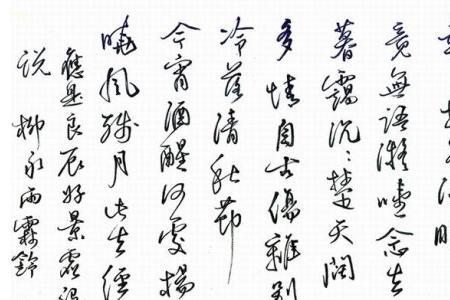 竟無語凝噎念去
暮靄沉々楚天闊
多情自古傷離別
冷落清秋節
今宵酒醒何處楊
曉風殘月此去經
應是良辰好景虛設
說 柳永雨霖鈴